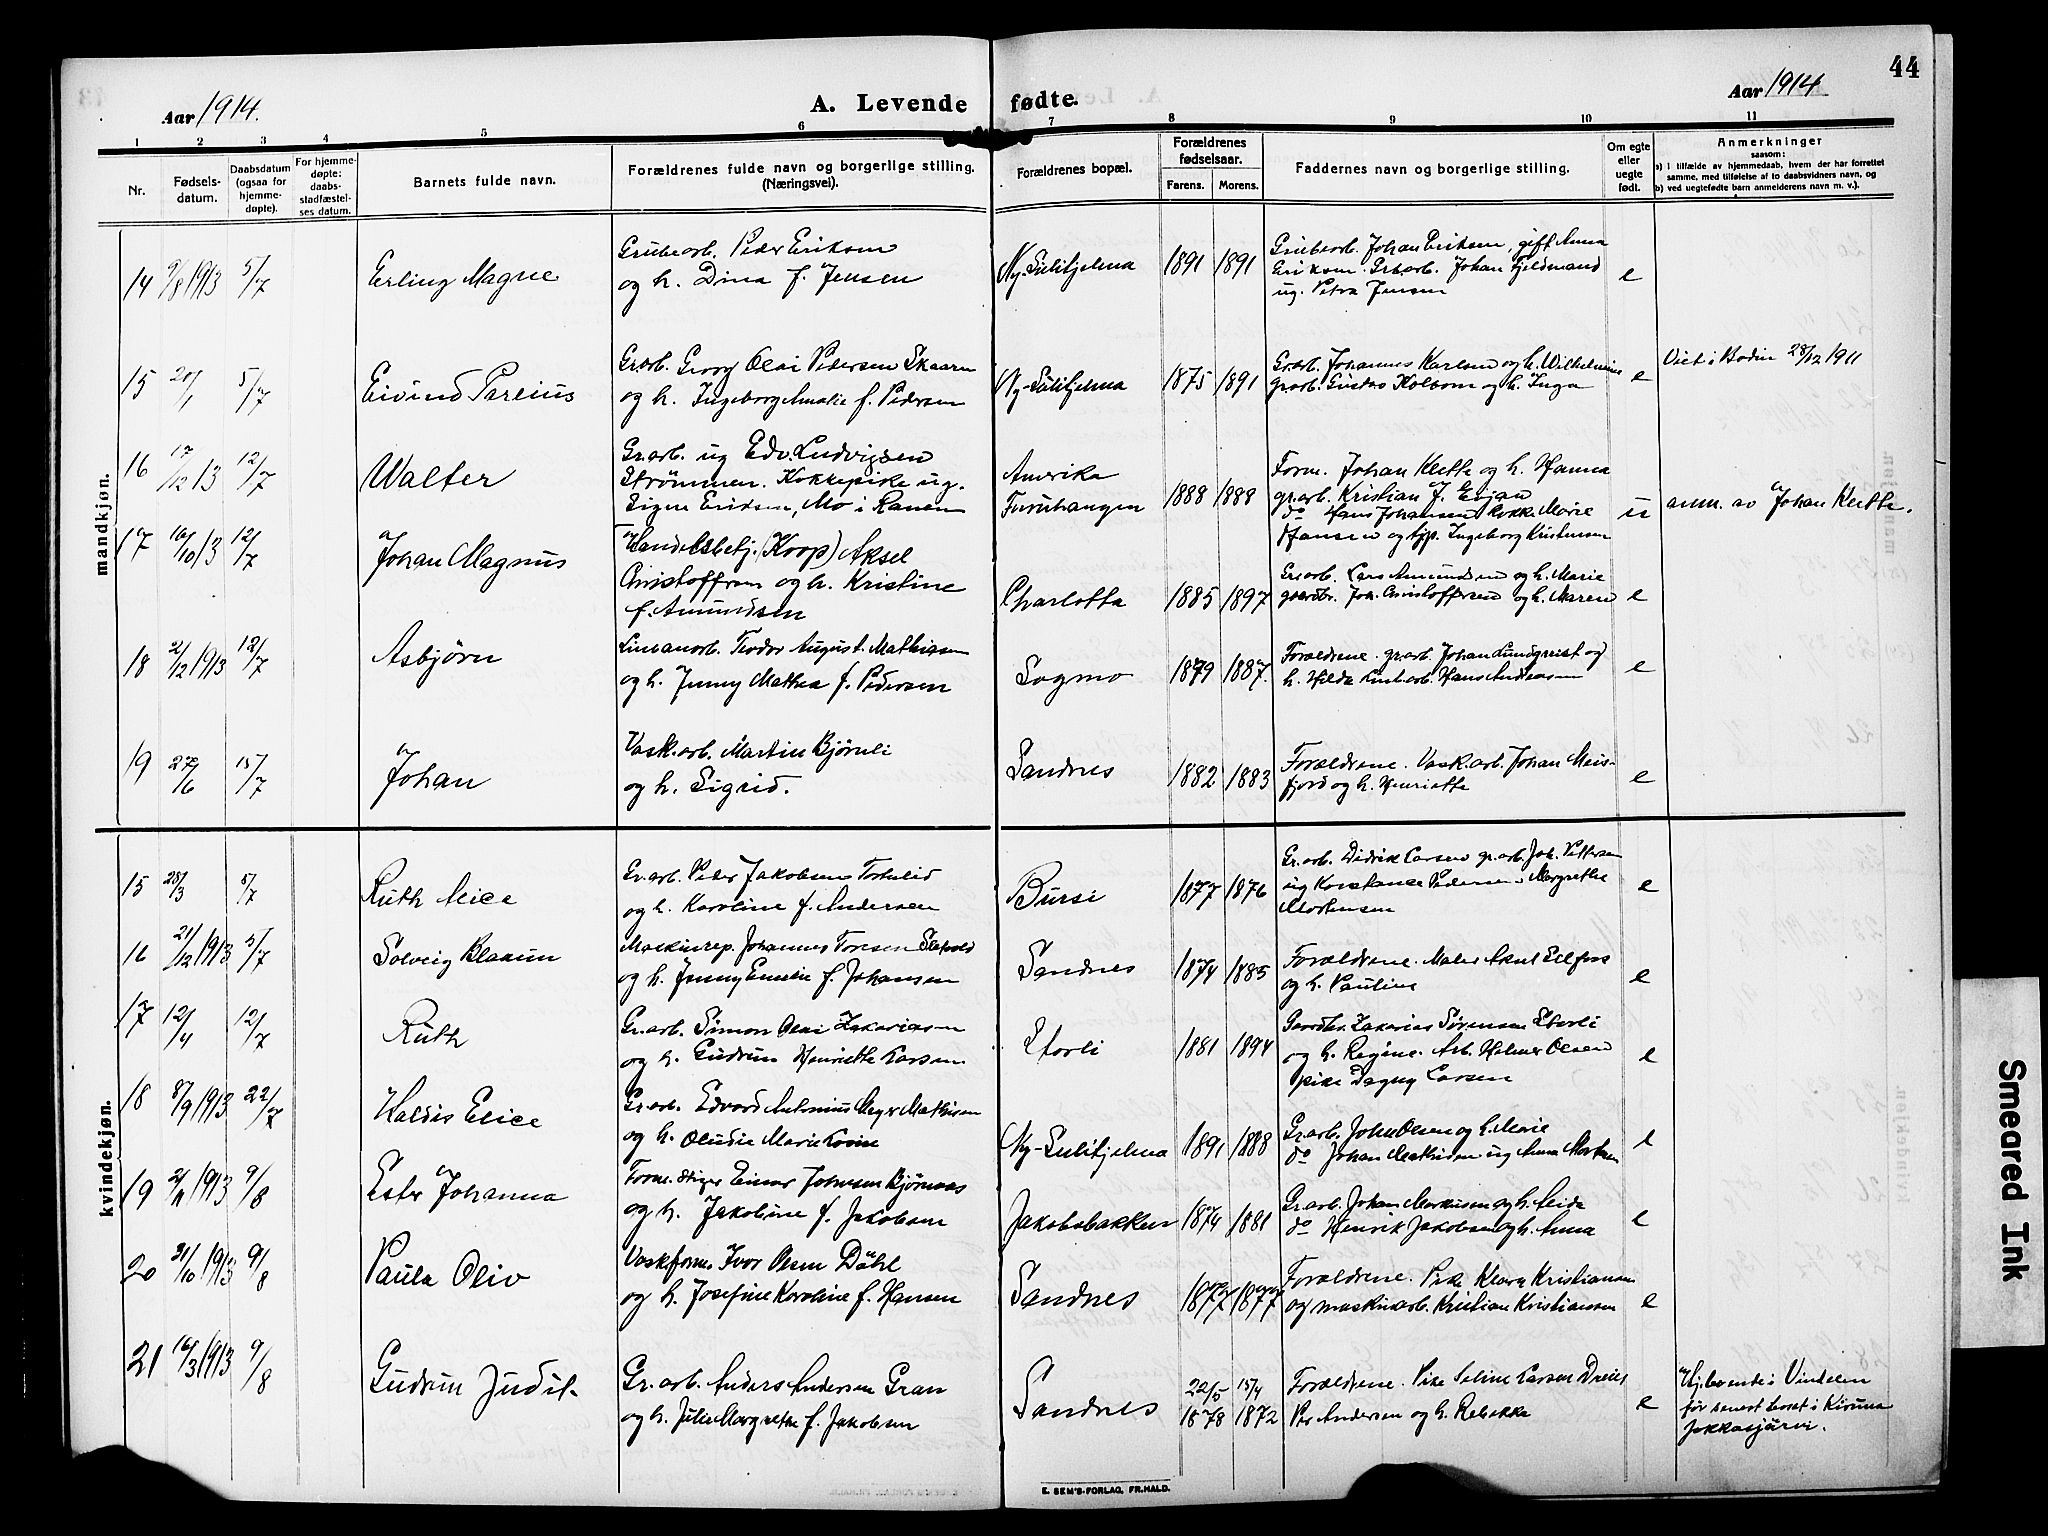 44
Aar 1914.
A. Levende fødte.
Aar 1914
1 2 3 4 5 6 7 8 9 10 11
Nr.
Fødsels-
datum.
Daabsdatum
(ogsaa for
hjemme-
døpte).
For hjemme-
døpte:
daabs-
stadfæstel-
ses datum.
Barnets fulde navn.
Forældrenes fulde navn og borgerlige stilling.
(Næringsvei).
Forældrenes bopæl.
Forældrenes
fødselsaar.
Farens. Morens.
Faddernes navn og borgerlige stilling.
Om egte
eller
uegte
født.
Anmerkninger
saasom:
a) i tilfælde av hjemmedaab, hvem der har forrettet
samme, med tilføielse af to daabsvidners navn, og
b) ved uegtefødte barn anmelderens navn m. v.).
mandkjøn.
14 9/8 1913 5/7
Erling Magne
Grubearb. Peder Eriksen
og h. Dina f. Jensen
Ny-Sulitjelma
1891 1891
Grubearb. Johan Eriksen, gift Anna
Eriksen. Gr.arb. Johan Fjeldmand
ug. Petra Jensen
e
15 20/1 5/7
Eivind Pareius
Gr.arb. Georg Olai Pedersen Skaarn
og h. Ingeborg Amalie f. Pedersen
Ny-Sulitjelma
1875 1891
Gr.arb. Johannes Karlsen og h. Wilhelmine
gr.arb. Gustav Kolbom og h. Inga
e
Viet i Bodin 28/12 1911
16 17/12 13 12/7
Walter
Gr.arb. ug Edv. Ludvigsen
Strømmen. Kokkepike ug.
Signe Eridsen, Mo i Ranen
Amerika
Furuhaugen
1888 1888
Form. Johan Klette og h. Hanna
gr.arb. Kristian J. Evjan
do Hans Johansen Kokke Marie
Hansen og tjp. Ingeborg Kristensen
u
anm. av Johan Klette.
17 16/10 13 12/7
Johan Magnus
Handelsbetj. (Koop) Aksel
Christoffersen og h. Kristine
f. Amundsen
Charlotta
1885 1897
Gr.arb. Lars Amundsen og h. Marie
gaardbr. Joh. Christoffersen og h. Maren
e
18 2/12 1913 12/7
Asbjørn
Lineanarb. Teodor August Mathisen
og h. Jenny Mathea f. Pedersen
Sagmo
1879 1887.
Forældrene. gr.arb. Johan Lundqvist og
h. Hilda Lineb.arb. Hans Andreasen
e
19 27/6 15/7
Johan
Vask.arb. Martin Bjørnli
og h. Sigrid.
Sandnes
1882 1883
Forældrene. Vask.arb. Johan Meis-
fjord og h. Henriette
e
kvindekjøn.
15 28/3 5/7
Ruth Alice
Gr.arb. Peder Jakobsen Torkilid
og h. Karoline f. Andersen
Bursi
1877 1876
Gr.arb. Didrik Larsen gr.arb. Joh. Pettersen
ug Konstance Pedersen. Margrethe
Mortensen
e
16 21/12 1913 5/7
Solveig Blaarun
Maskinrep. Johannes Toresen
og h. Jenny Emelie f. Johansen
Sandnes
1874 1885
Forældrene. Maler Aksel Elfors
og h. Pauline
e
17 12/4 12/7
Ruth
Gr.arb. Simon Olai Zakariasen
og h. Gudrun Henriette Larsen
Storli
1881 1894
Gaardbr. Zakarias Sørensen Storli
og h. Regine. Arb. Helmer Olsen
pike Dagny Larsen
e
18 8/9 1913 22/7
Haldis Elice
Gr.arb. Edvard Antonius Meyer Mathisen
og h. Oludie Marie Lovise
Ny-Sulitjelma
1891 1888
Gr.arb. John Olsen og h. Marie
do Johan Mathisen ug Anna Mortsen
e
19 21/11 1913 9/8
Ester Johanna
Form. Stiger Einar Johnsen Bjørnaas
og h. Jakobine f. Jakobsen
Jakobsbakken
1874 1881
Gr.arb. Johan Markusen og h. Alida
do Henrik Jakobsen og h. Anna
e
20 31/10 1913 9/8
Paula Oliv
Vaskform. Ivor Olsen Dahl
og h. Josefine Karoline f. Hansen
Sandnes
1877 1877
Forældrene. Pike Klara Kristiansen
og maskinarb. Kristian Kristiansen
e
21 16/3 1913 9/8
Gudrun Judit
Gr.arb. Anders Andersen Gran
og h. Julie Margrethe f. Jakobsen
Sandnes
22/5 1878 15/4 1872
Forældrene. Pike Seline Larsen Dreies
Per Andersen og h. Rebekka
e
Hj.levende i Vindelen
før senest bosat i Kiruna
Jukkasjärvi.
E. SEM'S FORLAG, FR.HALD.
Smeared Ink